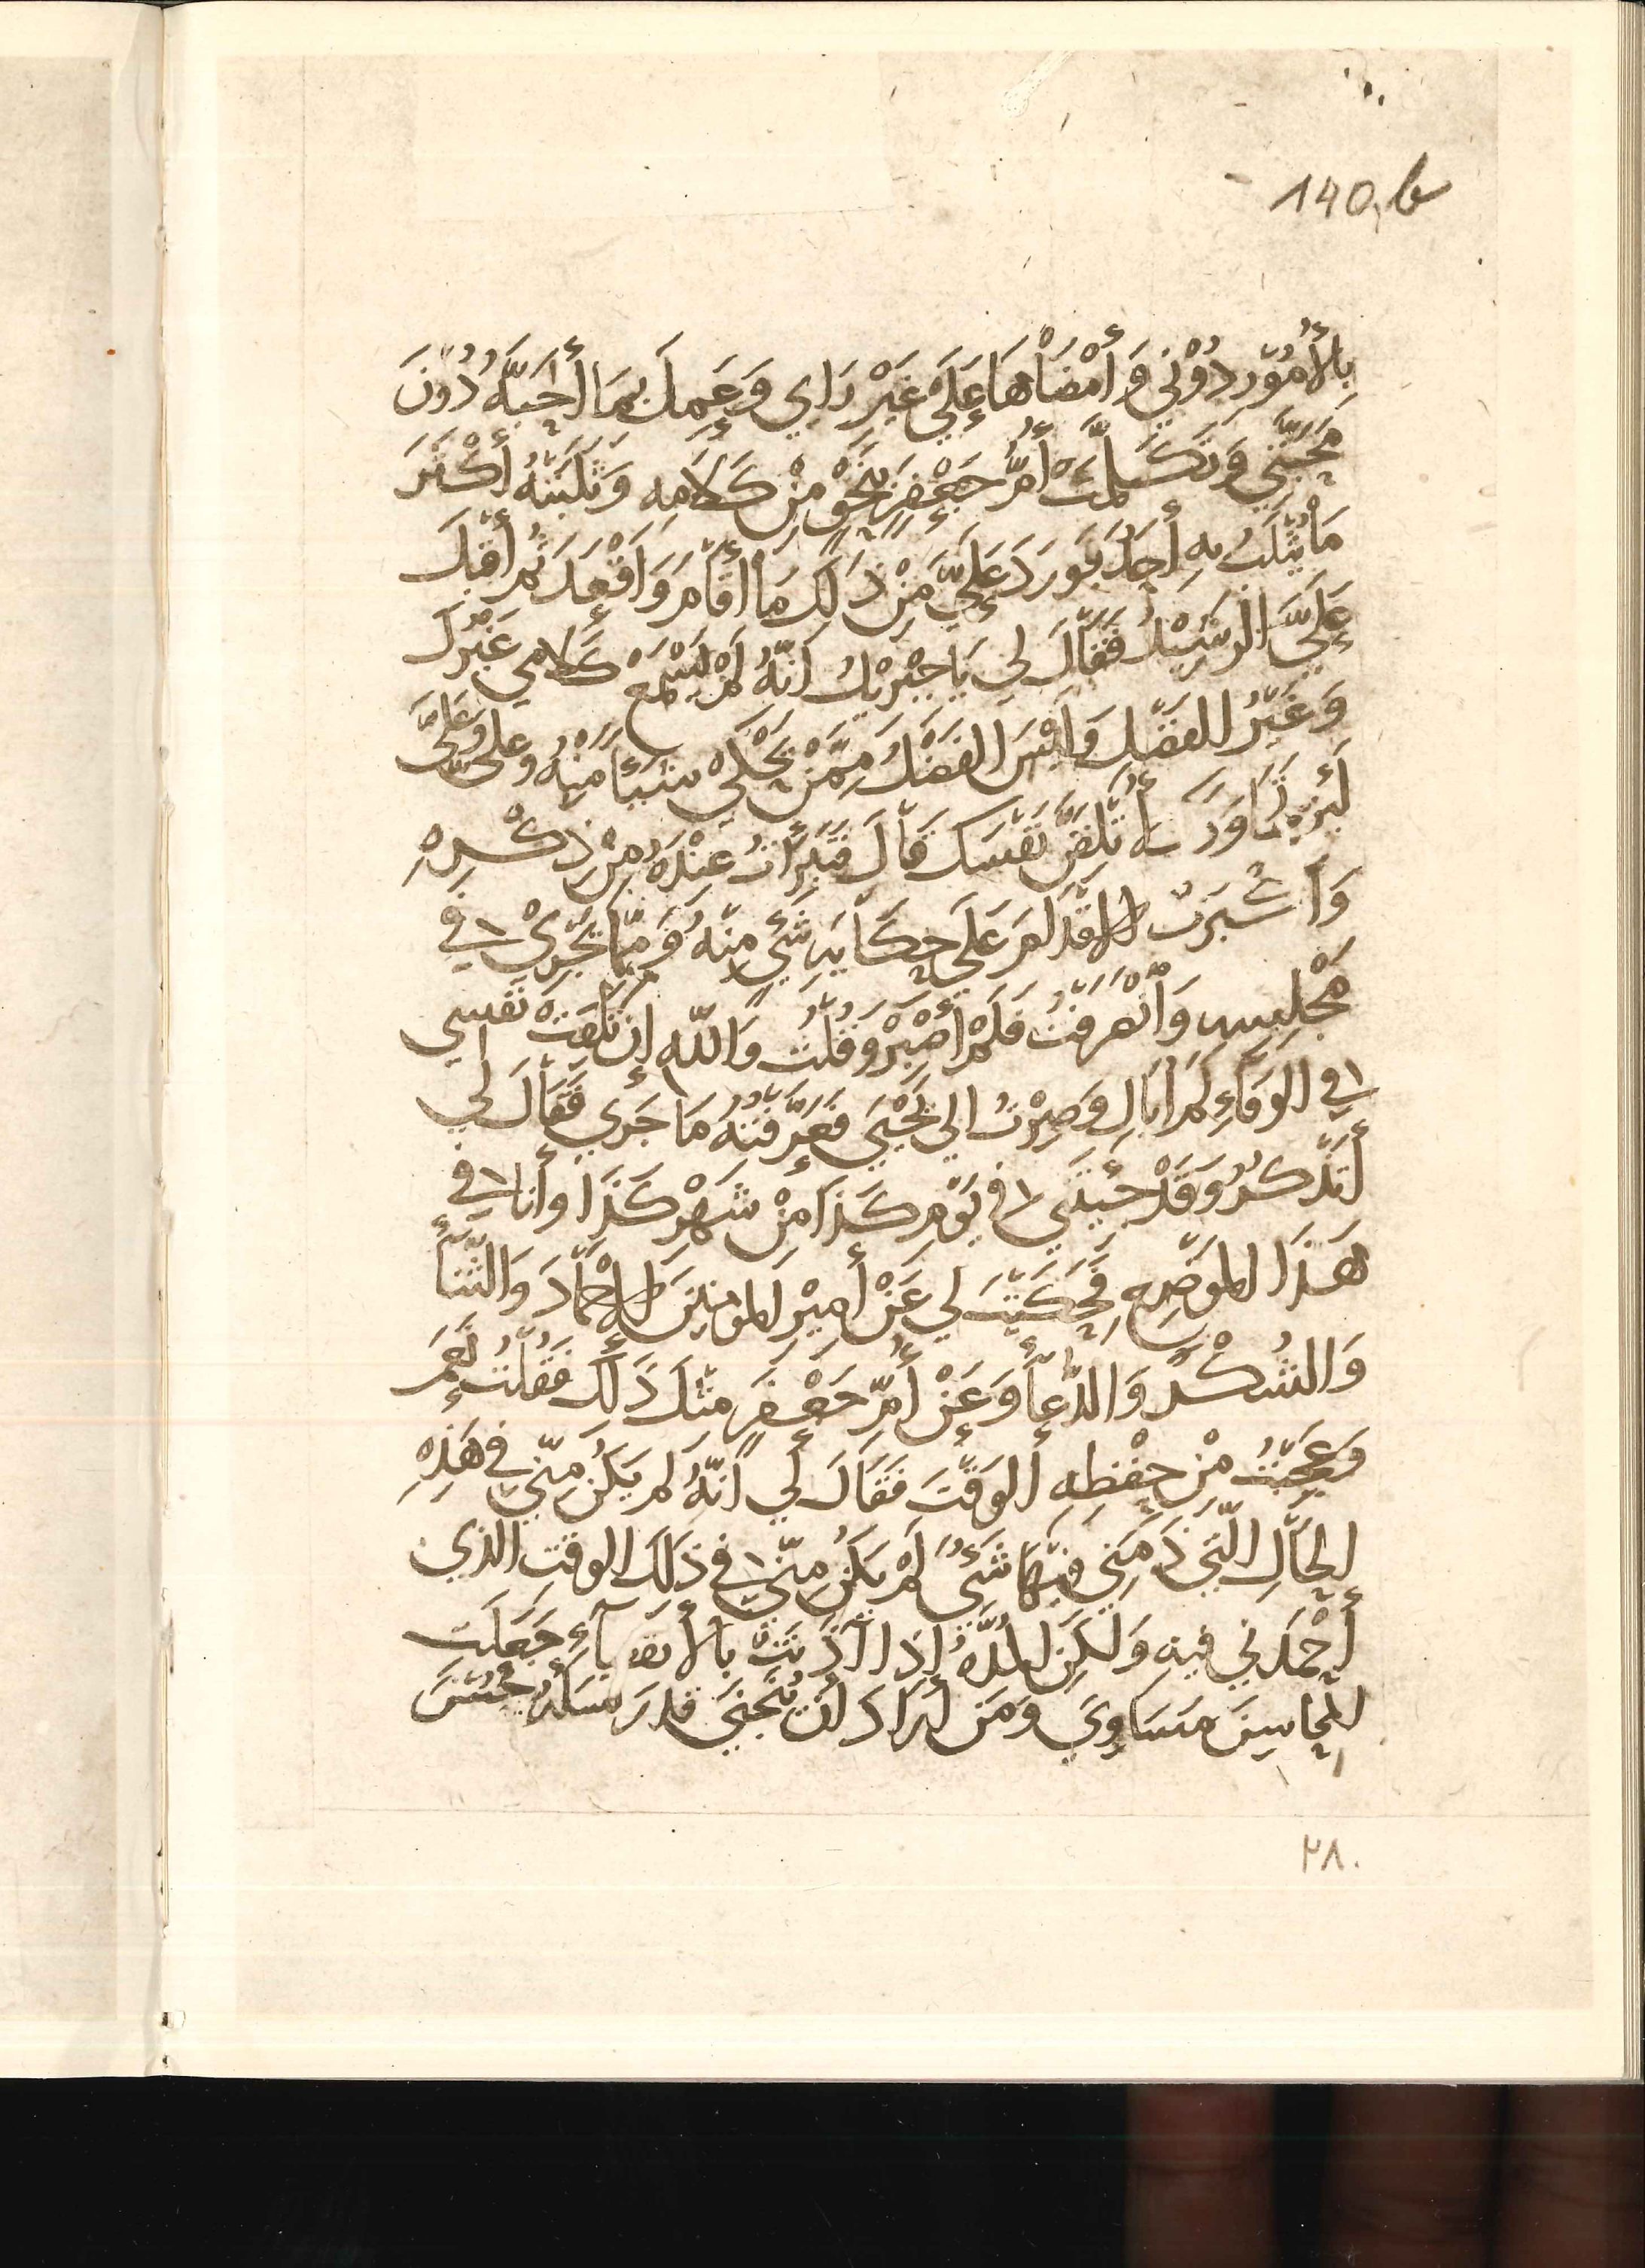 140,b
بِالأُمُوْرِ دُوْنِي وَأَمْضَاْهَا عَلَيْ غَيْرِ رَاي وَعَمِلَ بِمَا أَحَبَّهُ دُوْنَ
مَحَبَّتِي وَتَكَلَّمَتْ أُمُّ جَعْفَرٍ بِنَحْوٍ مِنْ كَلَامِه وَثَلَبَتْهُ أَكْثَرَ
مَاْ يُثْلَبُ بِهِ أَحَدٌ فَوَرَدَ عَلَيَّ مِنْ ذَلِكَ مَا أَقَاْمَ وَاَقْعَدَ ثُمَّ أَقْبَلَ
عَلَيَّ الرَشِيْدُ فَقَاْلَ لِي يَا جِبْرِيْلُ اَنَّهُ لَمْ يَسْمَعْ كَلَامِي غَيْرُكَ
وَغَيْرُ الفَضْلِ وَلَيْسَ الفَضْلُ مِمَّنْ يَحْكِي شَيْأً مِنْهُ وَعلى وَعَلَيَّ
لَئِنْ تَجَاوَزَكَ لَأُتْلِفَنَّ نَفْسَكَ قَاْلَ فَتَبَرَّأْتُ عِنْدَهُ مِنْ ذِكْرِهِ
الاقْدَامَ عَلَي حِكَاْيَةِ شَيْءٍ مِنْهُ وَمِمَّا يَجْرِيْ فِي
مَجْلِسِه وَاَنْصَرَفْتُ فَلَمْ أَصْبِرْ وَقُلْتُ وَاللّه إِن تَلِفَتْ نَفْسِي
فِي الوَفَاْءِ لَمْ أُبَالِ وَصِرْتُ الي يَحْيَي فَعَرَّفْتُهُ مَا جَرَي فَقَاْلَ لِي
أَتَذْكُرُ وَقَدْ جِئْتَنِي فِي يَوْمِ كَذَا مِنْ شَهْرِ كَذَا وأَنَا فِي
هَذَا المَوْضِعِ فَحَكَيْتَ لي عَنْ أَمِيْرِ المومنِيْنَ الاحْمَاْدَ وَالثَّنَاْءَ
وَالشُكْرَ وَالدُّعَاْءَ وَعَنْ أُمِّ جَعْفَرَ مِثْلَ ذَلِكَ فَقُلْتُ نَعَمْ
وَعَجِبْتُ مِنْ حِفْظِهِ الوَقْتَ فَقَالَ لِي اَنَّهُ لَمْ يَكُنْ مِنِّي فِي هَذِهِ
الحَاْلِ الَّتِي ذَمَّنِي فِيْهَا شَيْءٌ لَمْ يَكُنْ مِنِّي فِي ذَلِكَ الوقْتِ الذي
أَحْمَدَنِي فِيهِ وَلَكِنَّ المُدَّةُ إِذَا آذَنَتْ بِالأنقِضَاْءِ جَعَلَت
المَحَاسِنَ مَسَاوِيَ وَمَن أَرَاْدَ أَنْ يَتَجَنَّي قَدَرَ نَسأَلُ حُسْنَ
٢٨٠